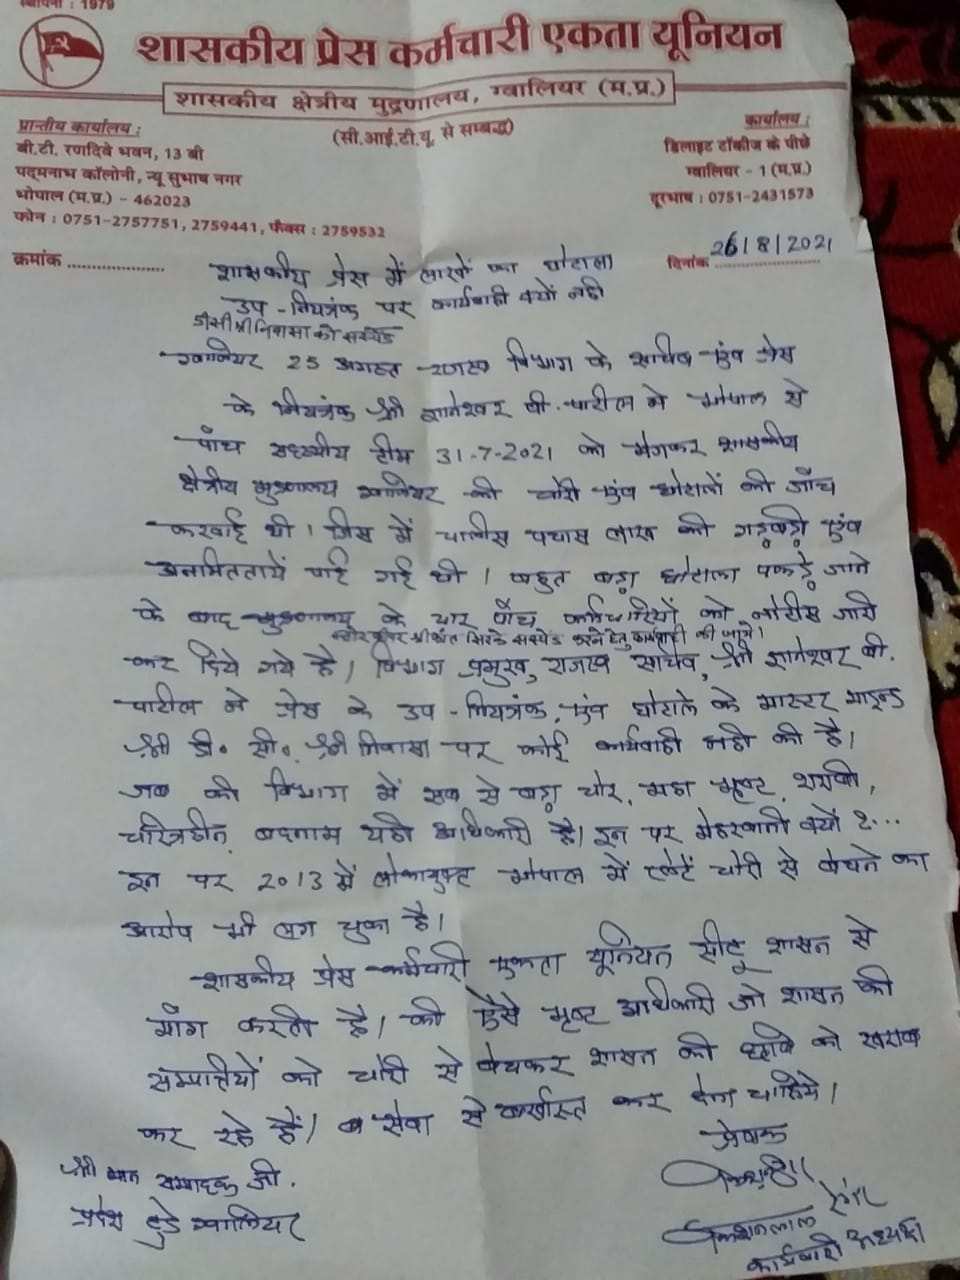 स्थापना : 1979
शासकीय प्रेस कर्मचारी एकता यूनियन
शासकीय क्षेत्रीय मुद्रणालय, ग्वालियर (म.प्र.)
(सी.आई.टी.यू. से सम्बद्ध)
प्रान्तीय कार्यालय :
बी.टी. रणदिवे भवन, 13 बी
पद्मनाभ कॉलोनी, न्यू सुभाष नगर
भोपाल (म.प्र.) - 462023
फोन : 0751-2757751, 2759441, फैक्स : 2759532
कार्यालय :
डिलाइट टॉकीज के पीछे
ग्वालियर - 1 (म.प्र.)
दूरभाष : 0751-2431573
क्रमांक ..................
दिनांक 26/8/2021
शासकीय प्रेस में लाखों का घोटाला
उप - नियत्रंक पर कार्यवाही क्यों नही
डीसी श्रीनिवासा को सस्पेंड
ग्वालियर 25 अगस्त राजस्व विभाग के सचिव एंव प्रेस
के नियत्रंक श्री ज्ञानेश्वर बी. पाटील ने भोपाल से
पाँच सदस्यीय टीम 31-7-2021 को भेजकर शासकीय
क्षेत्रीय मुद्रणालय ग्वालियर की चोरी एंव घोटालों की जाँच
करवाई थी। जिस में चालीस पचास लाख की गड़बड़ी एंव
अनमितताये पाई गई थी। बहुत बड़ा घोटाला पकड़े जाने
के बाद मुद्रणालय के चार पाँच कर्मचारियों को नोटीस जारी
स्टोर कीपर श्रीकांत सस्पेंड करने हेतु कार्यवाही की जाये।
कर दिये गये है। विभाग प्रमुख, राजस्व सचिव, श्री ज्ञानेश्वर बी.
पाटील ने प्रेस के उप - नियत्रंक, एंव घोटाले के मास्टर माइन्ड
श्री डी. सी. श्री निवासा पर कोई कार्यवाही नही की है।
जब की विभाग में सब से बड़ा चोर, महा भृष्ट, शराबी,
चरित्रहीन, बदनाम यही अधिकारी है। इन पर मेहरबानी क्यों ?...
इन पर 2013 में लोकायुक्त भोपाल में प्लेटें चोरी से बेचने का
आरोप भी लग चुका है।
शासकीय प्रेस कर्मचारी एकता यूनियन सीटू शासन से
माँग करती है। की ऐसे भृष्ट अधिकारी जो शासन की
सम्पात्तियों को चोरी से बेचकर शासन की छवि को खराब
कर रहे हैं। व सेवा से बर्खास्त कर देना चाहिये।
प्रेषक
श्री मान सम्पादक जी.
प्रदेश टुडे ग्वालियर
किशनलाल
कार्यवारी अध्यक्ष